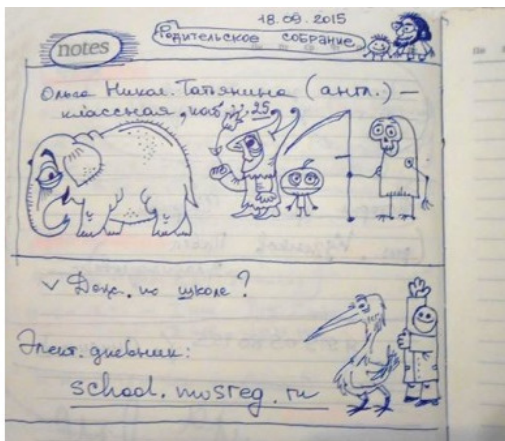 18.09.2015
notes
Родительское собрание
Ольга Никол. Татьянина (англ.) —
классная, каб. 25
v Деж. по школе?
Элект. дневник:
school.mosreg.ru